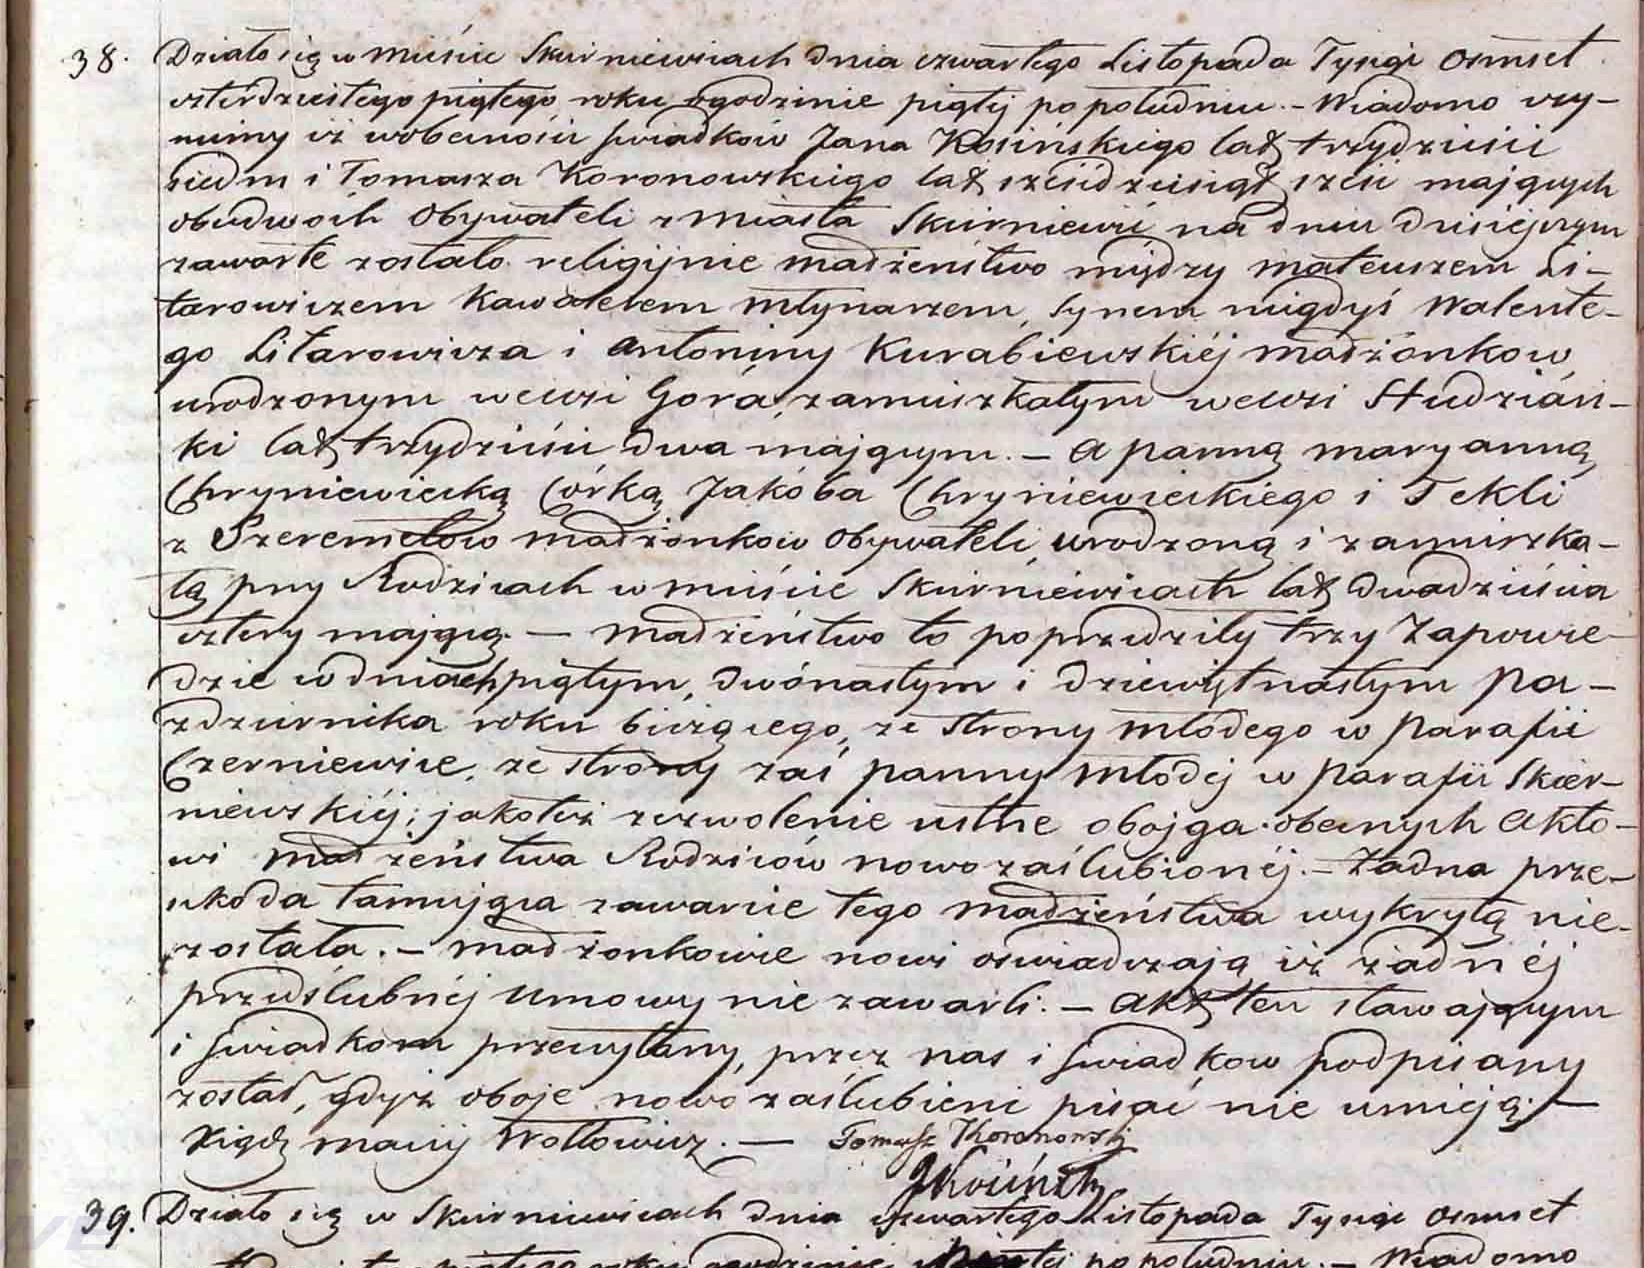 38. Działo się w mieście Skierniewicach dnia czwartego Listopada Tysiąc Osmset
czterdziestego piątego roku o godzinie piątéj po południu. – Wiadomo czy-
niemy iż w obecności świadków Jana Kosińskiego lat trzydzieści
siedm i Tomasza Koronowskiego lat sześćdziesiąt sześć mających
obudwóch Obywateli z miasta Skierniewic na dniu dzisiejszym
zawarte zostało religijnie madżeństwo między Mateuszem Li-
tarowiczem Kawalerem Młynarzem, synem niegdyś Walente-
go Litarowicza i Antoniny Kurabiewskiéj madżonkow,
urodzonym we wsi Góra, zamieszkałym we wsi Studzián-
ki lat trzydzieści dwa mającym. – a panną Maryanną
Chryniewiecką Córką Jakóba Chryniewieckiego i Tekli
z Szeremetow madżonkow Obywateli urodzoną i zamieszka-
łą przy Rodzicach w mieście Skierniewicach lat dwadzieścia
cztery mającą. – Madżeństwo to poprzedziły trzy Zapowie-
dzie w dniach piątym, dwónastym i dziewiętnastym Pa-
zdziernika roku bieżącego, ze strony młodego w Parafii
Czerniewice, ze strony zaś panny młodéj w Parafii Skier-
niewskiéj; jakoteż zezwolenie ustne obojga obecnych Akto-
wi madżeństwa Rodziców nowozaślubionéj. – Żadna prze-
szkoda tamująca zawarcie tego madżeństwa wykrytą nie-
została. – Madżonkowie nowi oswiadczają iż żadnéj
przedślubnéj umowy nie zawarli. – Akt ten stawającym
i świadkom przeczytany, przez nas i świadkow podpisany
został, gdyż oboje nowo zaślubieni pisać nie umieją. –
Xiądz Maciéj Wołłowicz. – Tomasz Koronowski
JKosiński
39. Działo się w Skierniewicach dnia czwartego Listopada Tysiąc Osmset
piątego roku o godzinie piątej po południu. – Wiadomo